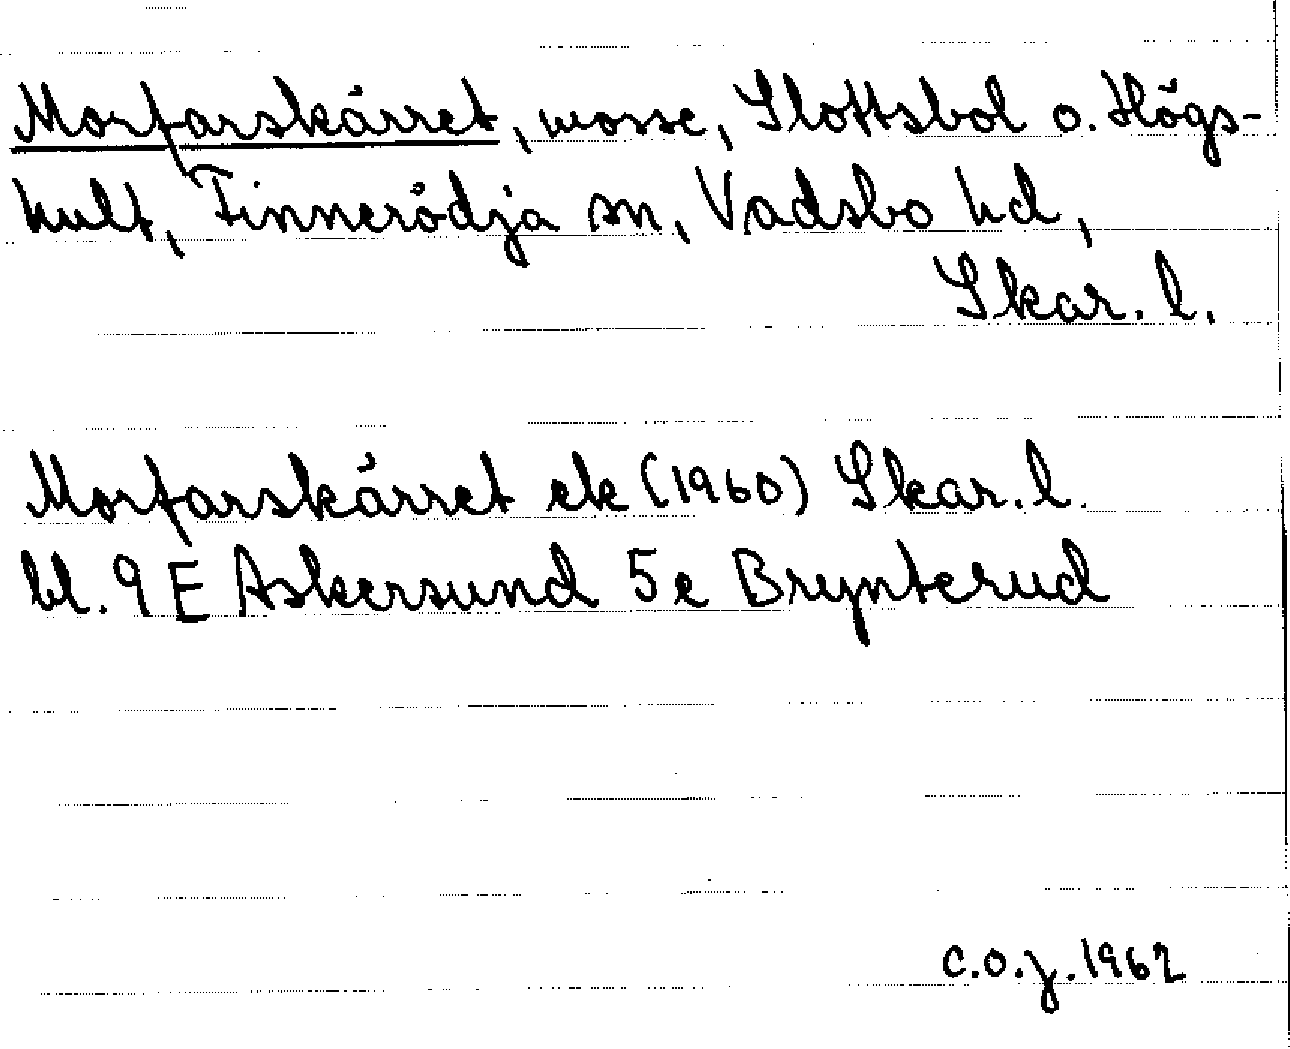 Morfarskärret, mosse, Slottsbol o. Högs-
hult, Finnerödja sn, Vadsbo hd,
Skar. l.
Morfarskärret ek (1960) Skar. l.
bl. 9 E Askersund 5e Brynterud
C.O.J. 1962